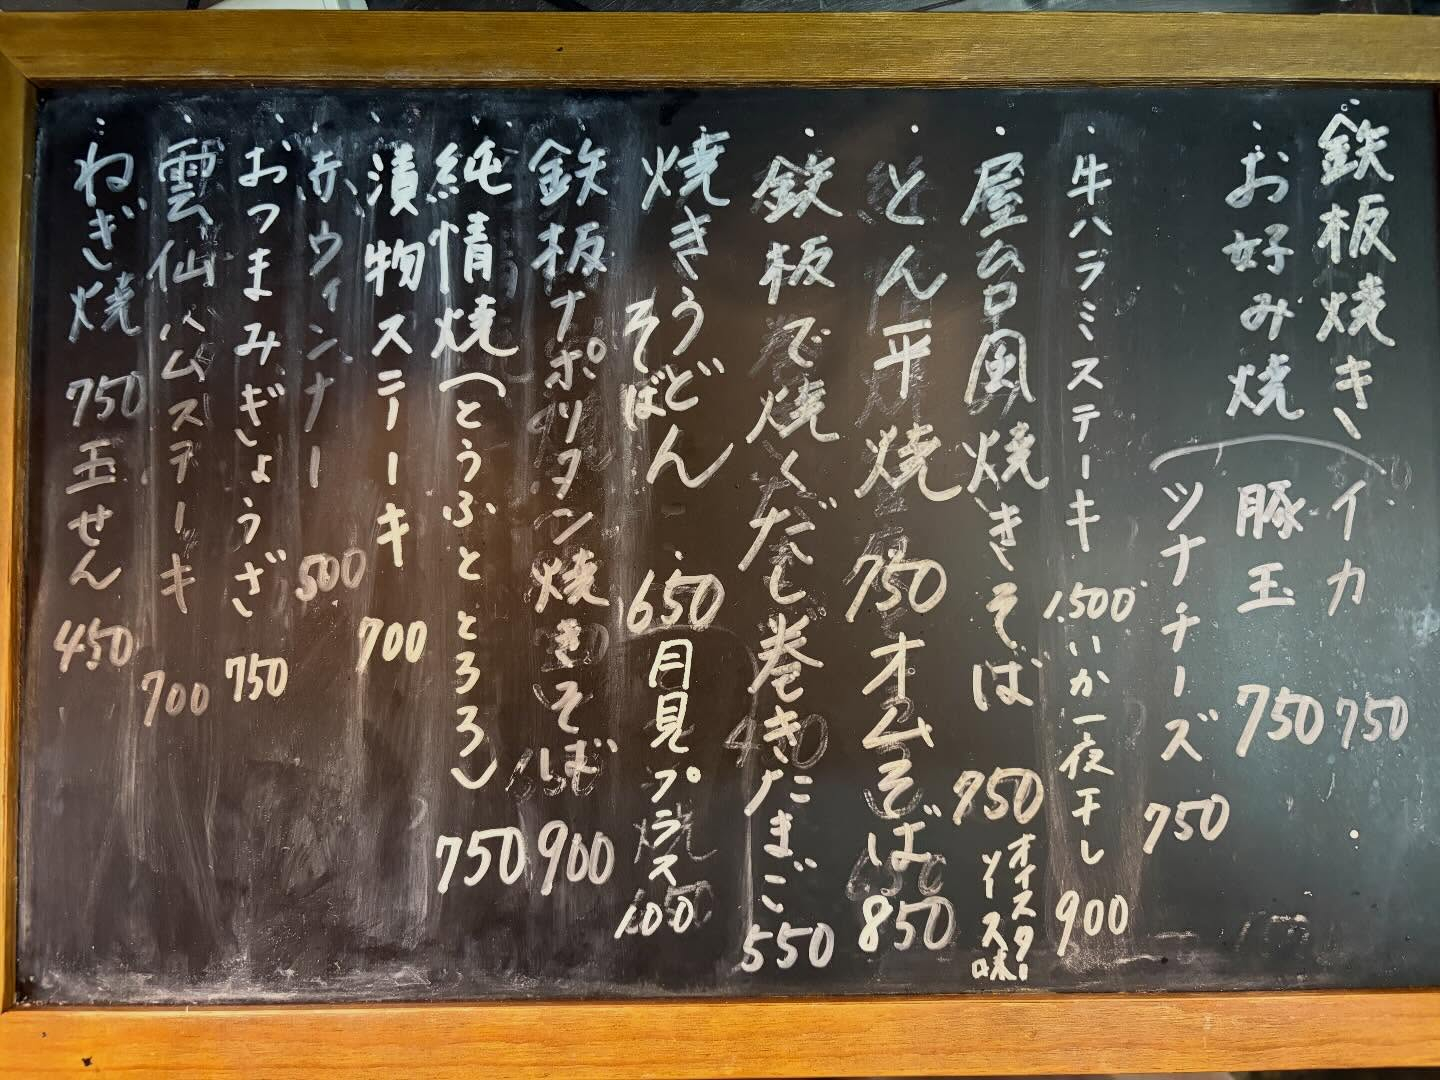 鉄板焼き イカ 750
お好み焼 豚玉 750
ツナチーズ 750
牛ハラミステーキ 1,500 いか一夜干し 900
屋台風焼きそば 750 オイスターソース味
とん平焼 750 オムそば 850
鉄板で焼くだし巻きたまご 550
焼きうどん そば 650 月見プラス 100
鉄板ナポリタン焼きそば 900
純情焼(とうふととろろ) 750
漬物ステーキ 700
赤ウィンナー 500
おつまみぎょうざ 750
雲仙ハムステーキ 700
ねぎ焼 750 玉せん 450